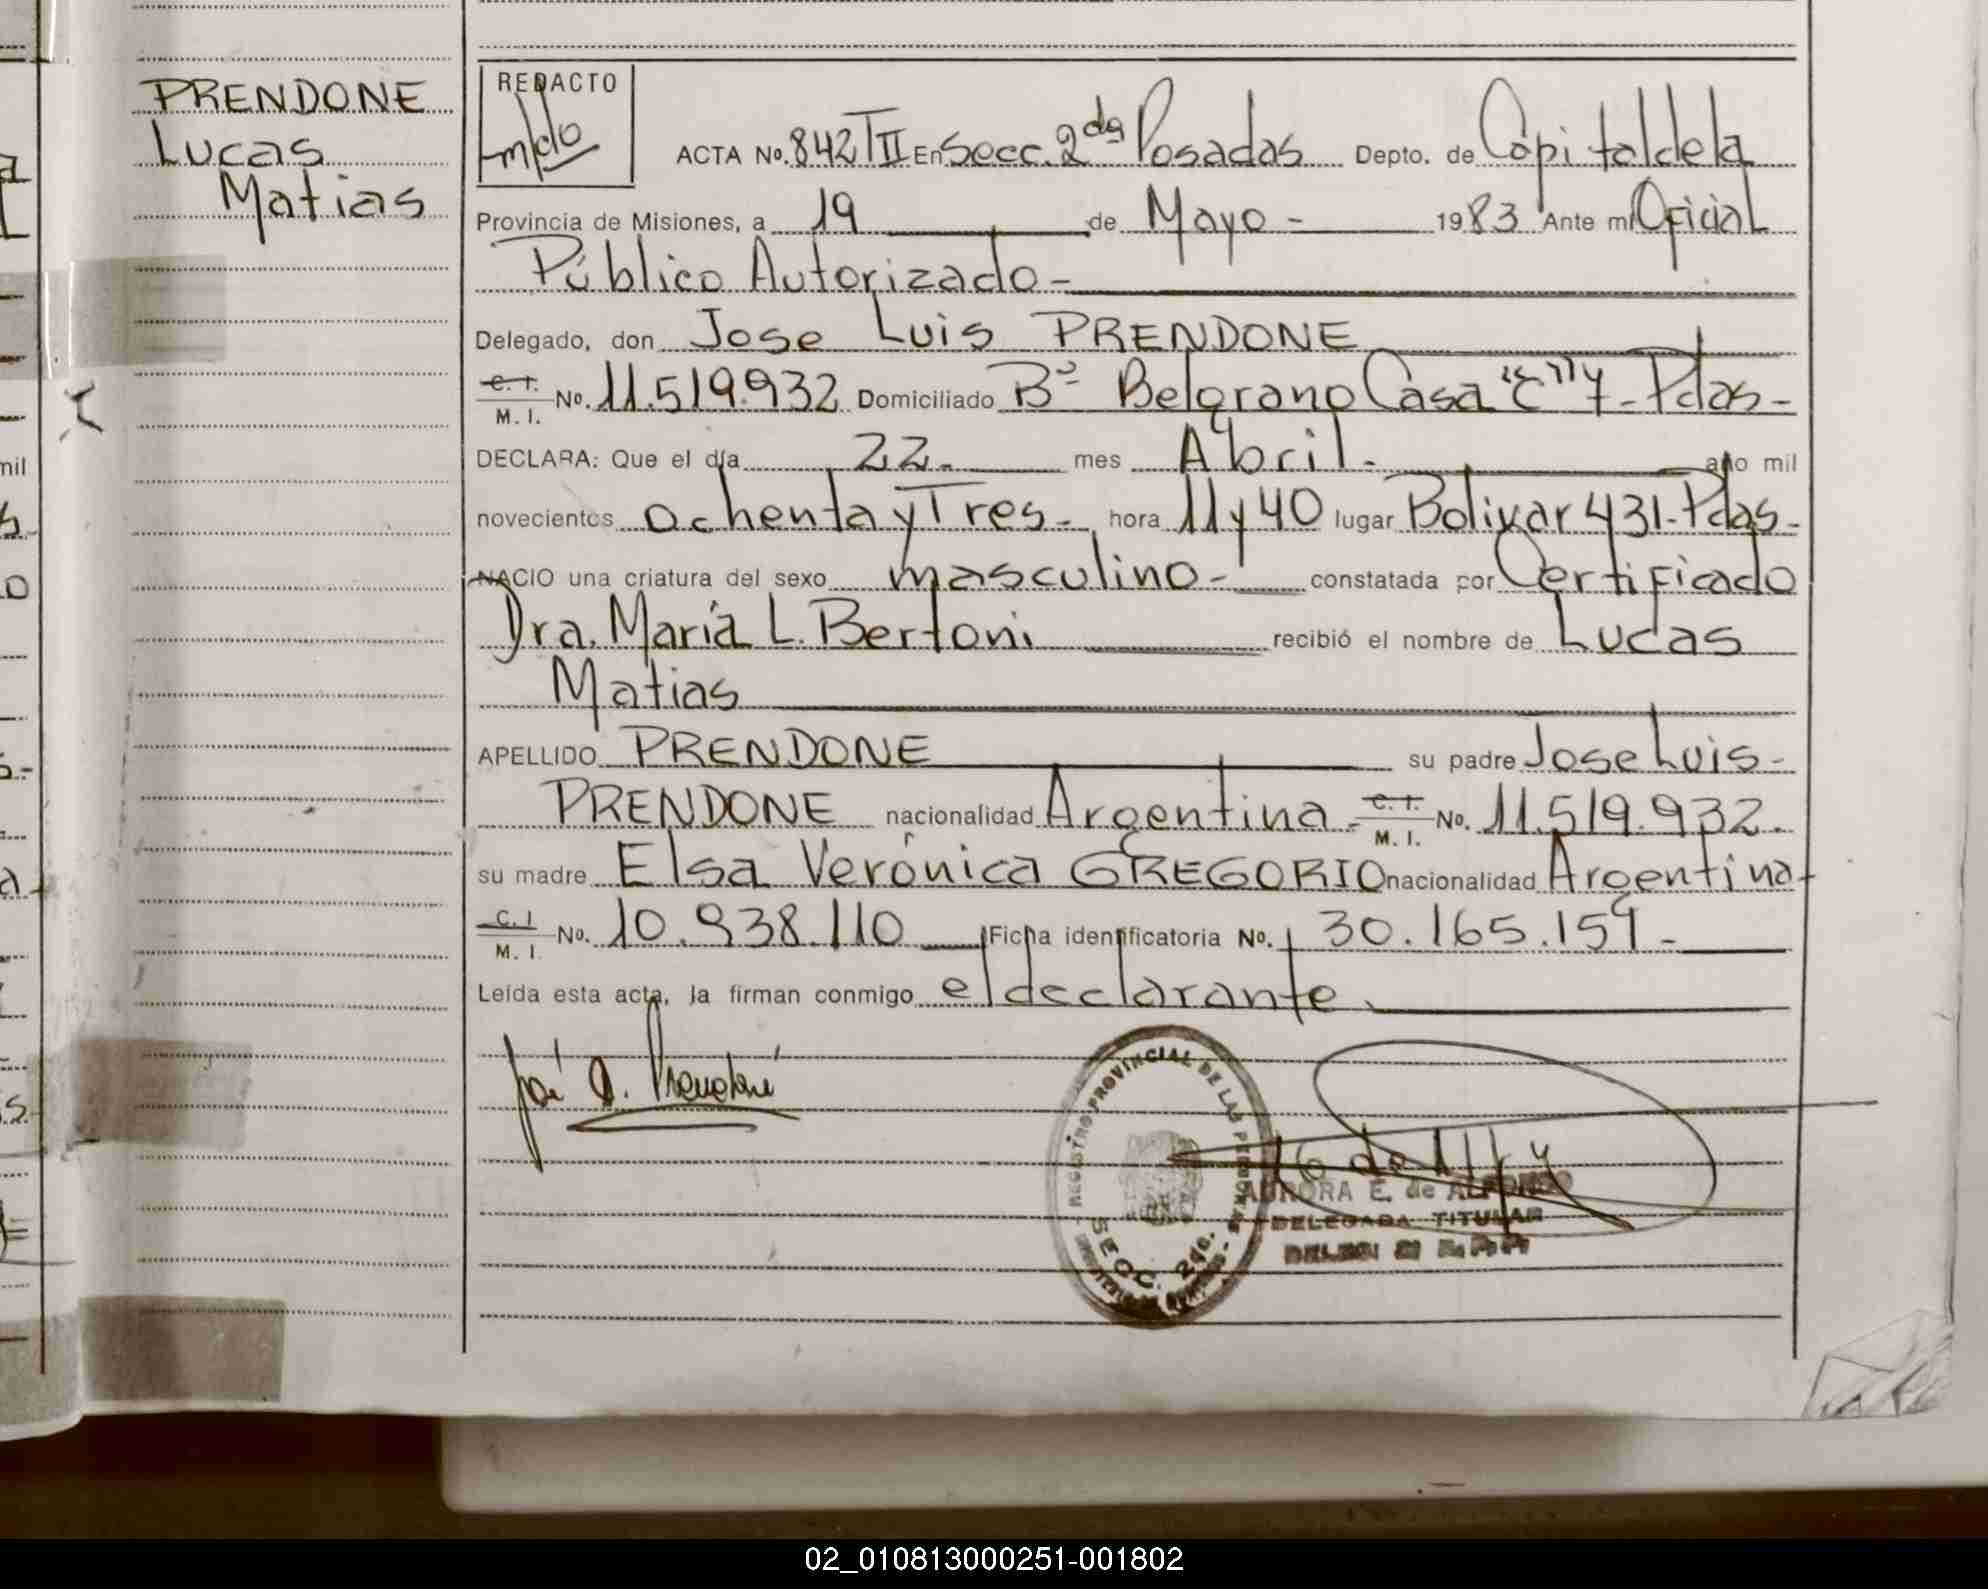 PRENDONE
Lucas
Matias
REDACTO
ACTA No. 842 T II En Secc. 2da Posadas Depto. de Capital de la
Provincia de Misiones, a 19 de Mayo - 1983 Ante mi Oficial
Público Autorizado -
Delegado, don Jose Luis PRENDONE
C. I. M. I. No. 11.519.932 Domiciliado Bº Belgrano Casa "C" 7 - Pdas -
DECLARA: Que el día 22 - mes Abril - año mil
novecientos ochenta y Tres - hora 11 y 40 lugar Bolivar 431 - Pdas -
NACIO una criatura del sexo masculino - constatada por Certificado
Dra. María L. Bertoni recibió el nombre de Lucas
Matias
APELLIDO PRENDONE su padre Jose Luis -
PRENDONE nacionalidad Argentina - C. I. M. I. No. 11.519.932.
su madre Elsa Verónica GREGORIO nacionalidad Argentina
C. I. M. I. No. 10.938.110 Ficha identificatoria No. 30.165.159 -
Leída esta acta, la firman conmigo el declarante.
REGISTRO PROVINCIAL DE LAS PERSONAS
SECC. 2da.
AURORA E. de ALFONSO
DELEGADA TITULAR
mil
02_010813000251-001802